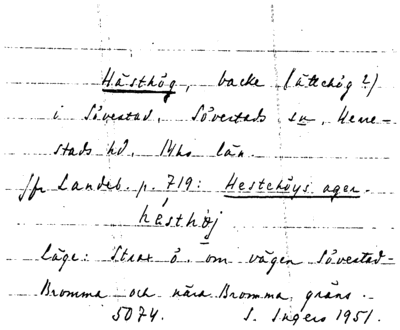 Hästhög, backe (ättehög?)
i Sövestad, Sövestads sn, Herre-
stads hd, Mhs län.
Jfr Landeb. p. 719: Hestehöys ager.
hésthøj
Läge: Strax ö. om vägen Sövestad-
Bromma och nära Bromma gräns.
5074. S. Ingers 1951.